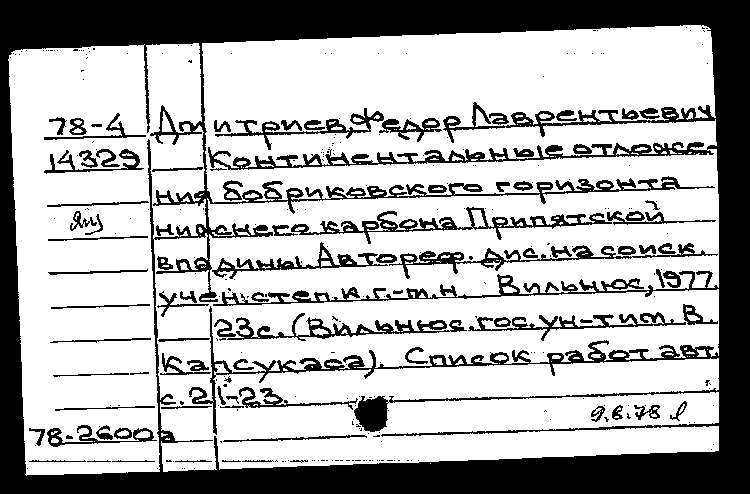 78-4 Дмитриев, Федор Лаврентьевич
14329 Континентальные отложе-
ния бобриковского горизонта
нижнего карбона Припятской
впадины. Автореф. дис. на соиск.
учен. степ. к. г.-м. н. Вильнюс, 1977.
23с. (Вильнюс. гос. ун-т им. В.
Капсукаса). Список работ авт.
с. 21-23.
9.6.78
78-2600а